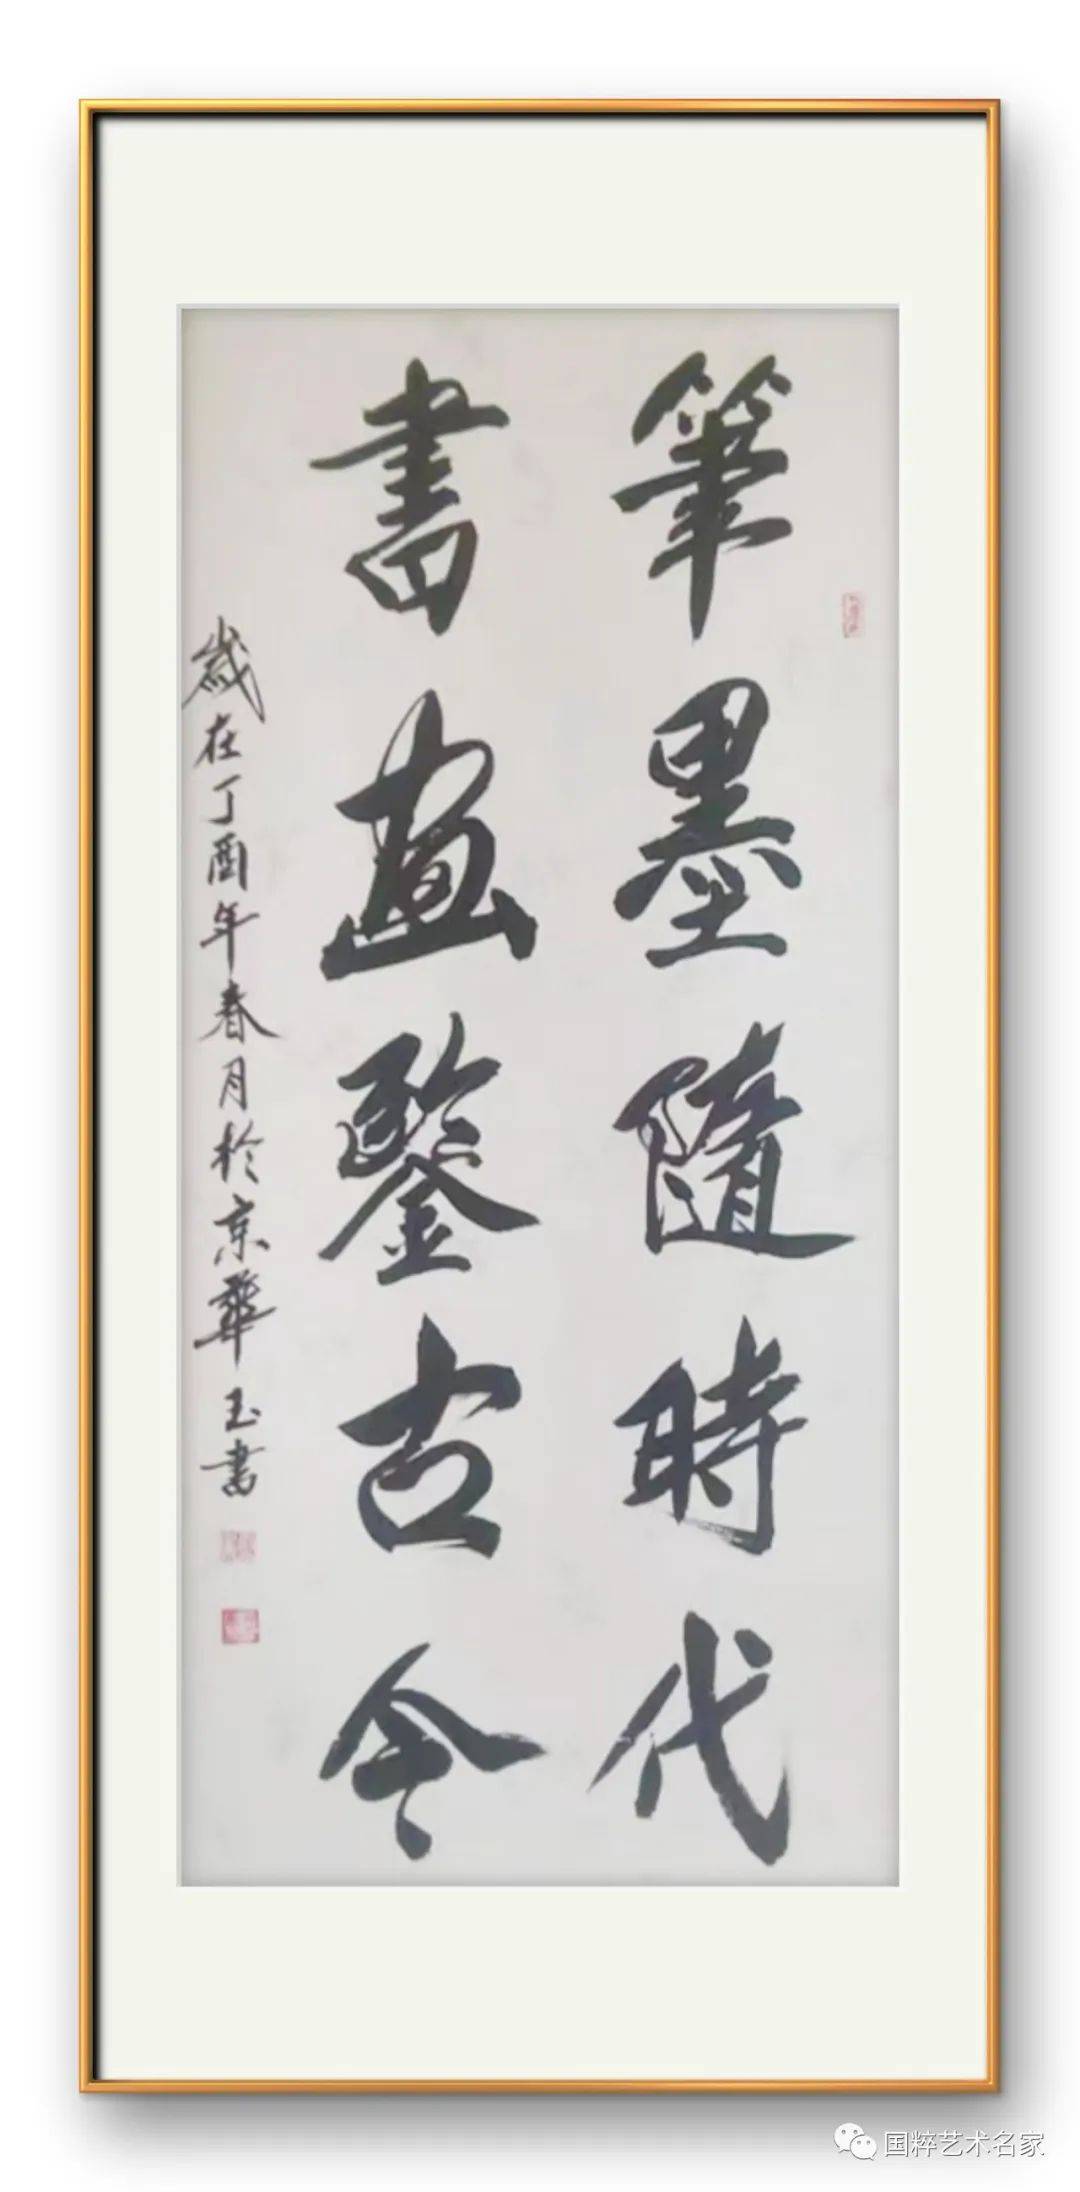 筆墨隨時代
書畫鑒古今
歲在丁酉年春月於京華玉書
国粹艺术名家